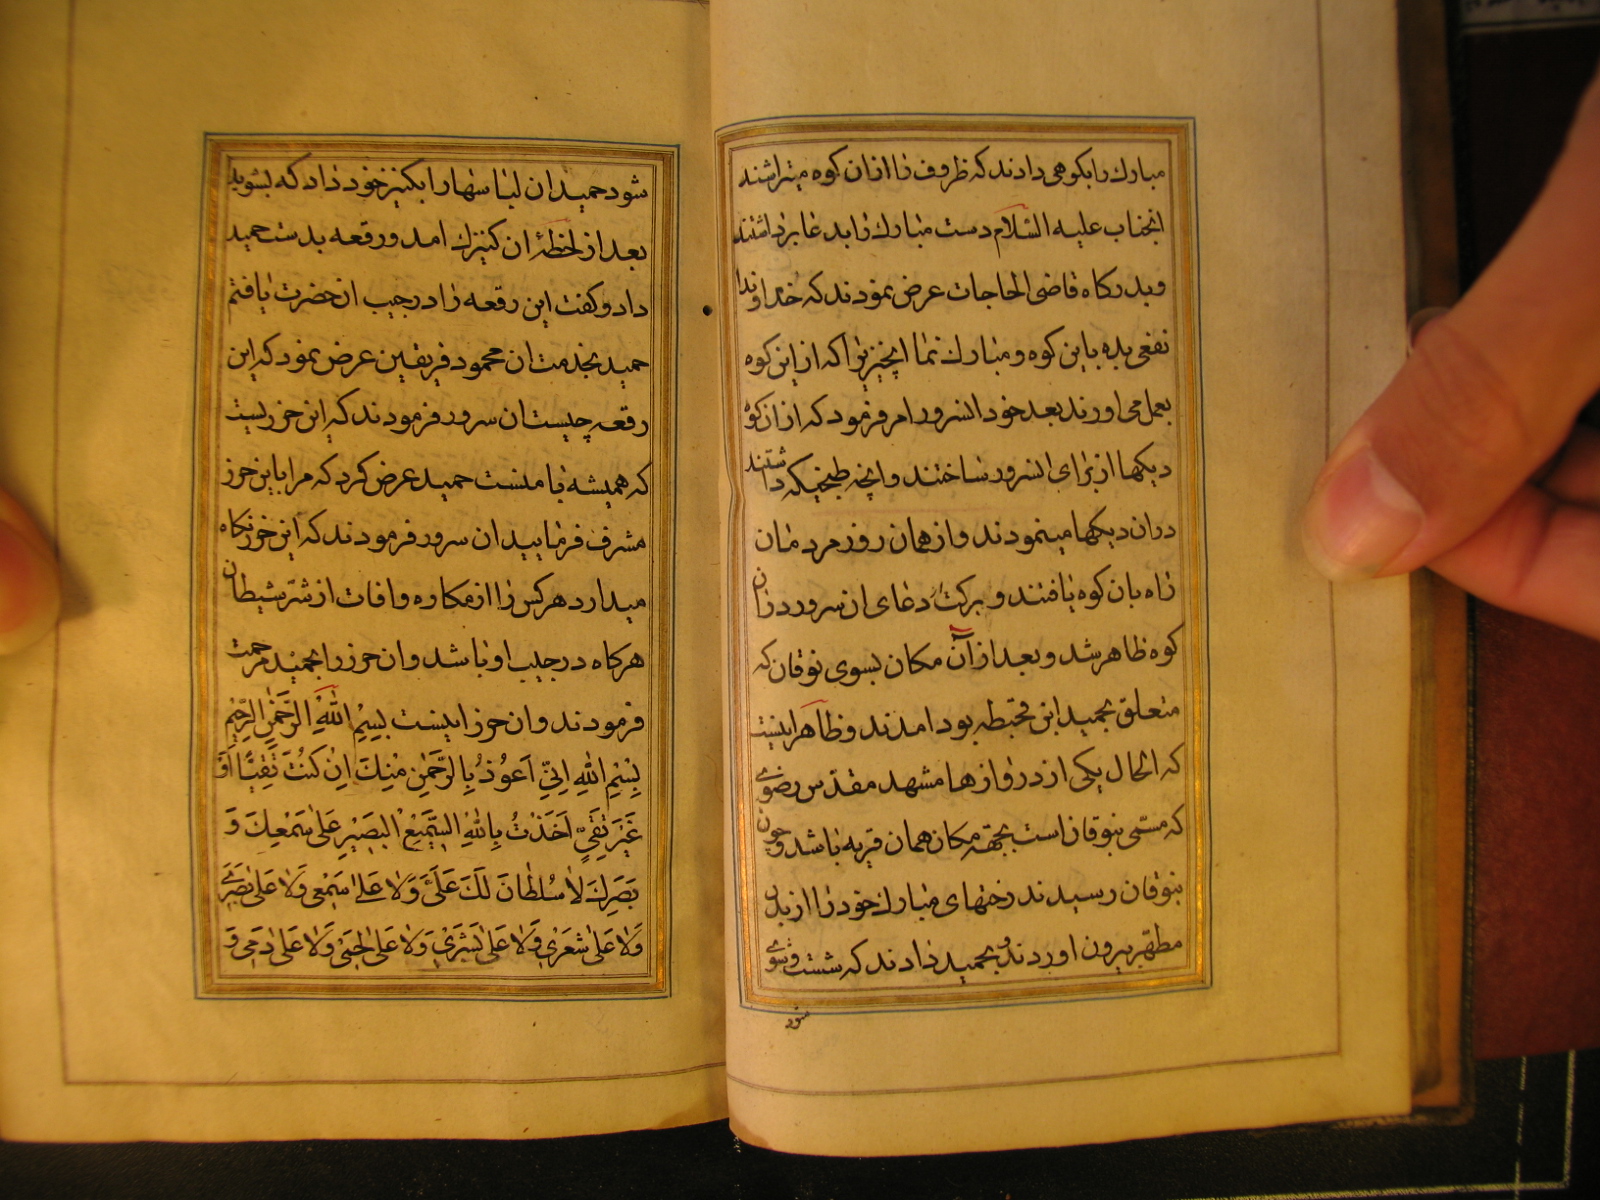 مبارك را بكوهی دادند كه ظروف را ازان كوه میتراشند
انجناب علیه السّلام دست مبارك را بدعا برداشتند
و بدركاه قاضی الحاجات عرض نمودند كه خداوندا
نفعی بده باین كوه و مبارك نما انچیزیرا كه از این كوه
بعمل می اورند بعد خود السرور امر فرمود كه از ان كوه
دیكها از برای السرور ساختند و انچه طبخیكه داشتند
دران دیكها مینمودند و از همان روز مردمان
راه بان كوه یافتند و بركت دعای ان سرور دران
كوه ظاهر شد و بعد از آن مكان بسوی نوقان كه
متعلق بحمید ابن قحطبه بود امدند و ظاهر اینست
كه الحال یكی از دروازها مشهد مقدس رضوی
كه مسمی بنوقان است بجهة مكان همان قریه باشد و چون
بنوقان رسیدند رختهای مبارك خود را از بدن
مطهر بیرون اوردند و بحمید دادند كه شست و شوی
شود
شود حمید ان لباسها را بكنیز خود داد كه بشوید
بعد از لحظهٔ ان كنیزك امد و رقعه بدست حمید
داد و كفت این رقعه را در جیب ان حضرت یافتم
حمید بخدمت ان محمود فریقین عرض نمود كه این
رقعه چیست ان سرور فرمودند كه این حرزیست
كه همیشه با منست حمید عرض كرد كه مرا باین حرز
مشرف فرمایید ان سرور فرمودند كه این حرز نكاه
میدارد هر كس را از مكاره و افات از شرّ شیطان
هركاه در جیب او باشد و ان حرز را بحمید مرحمت
فرمودند و ان حرز اینست بِسْمِ اللّٰهِ الرَّحْمٰنِ الرَّحِیْمِ
بِسْمِ اللّٰهِ اِنِّیْ اَعُوْذُ بِالرَّحْمٰنِ مِنْكَ اِنْ كُنْتَ تَقِیًّا اَوْ
غَیْرَ تَقِیٍّ اَخَذْتُ بِاللّٰهِ السَّمِیْعِ الْبَصِیْرِ عَلٰی سَمْعِكَ وَ
بَصَرِكَ لَا سُلْطَانَ لَكَ عَلَیَّ وَلَا عَلٰی سَمْعِی وَلَا عَلٰی بَصَرِیْ
وَلَا عَلٰی شَعْرِیْ وَلَا عَلٰی بَشَرِیْ وَلَا عَلٰی لَحْمِیْ وَلَا عَلٰی دَمِیْ وَ